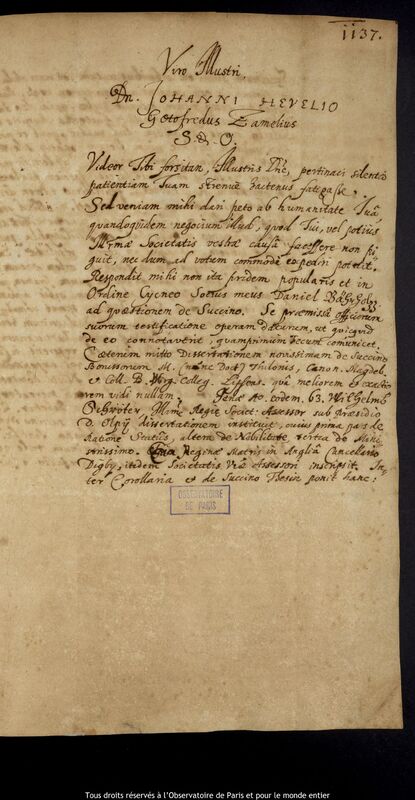 1137.
Viro Illustri,
Dn. JOHANNI HEVELIO
Gotofredus Zamelius
S. & O.
Videor Tibi forsitan, Illustris Dne, pertinaci silentio
patientiam Tuam strenuè hactenus fatigasse.
Sed veniam mihi dari peto ab humanitate Tuâ,
quandoquidem negocium illud, quod Tui, vel potius
Illmæ Societatis vestræ causâ facessere non pi
guit, nec dum ad votum commode expediri potuit.
Respondit mihi non ita pridem popularis et in
Ordine Cycneo Socius meus Daniel Bährholz,
ad quæstionem de Succino. Se præmissâ officiorum
suorum testificatione operam daturum, ut quicquid
de eo connotaverit, quamprimum tecum communicet,
Cæterùm mitto Dissertationem novissimam de Succino
Borussorum M. (nunc Doct.) Thilonis, Canon. Magdeb.
& Coll. B. Virg. Colleg. Lipsens. quâ meliorem et exactio
rem vidi nullam. Jenæ Ao. eodem. 63. Wilhelmg
Schröter, Regiæ Societ: Assessor sub Præsidio
D. Olpij dissertationem instituit, cuius prima pars de
Ratione Status, altera de Nobilitate, tertia de Mini
strissimo. Reginæ Matris in Angliâ Cancellario
Digby, itidem Societatis Assessori inscripsit. In
ter Corollaria et de Succino Thesin ponit hanc:
OBSERVATOIRE
DE PARIS
Tous droits réservés à l'Observatoire de Paris et pour le monde entier